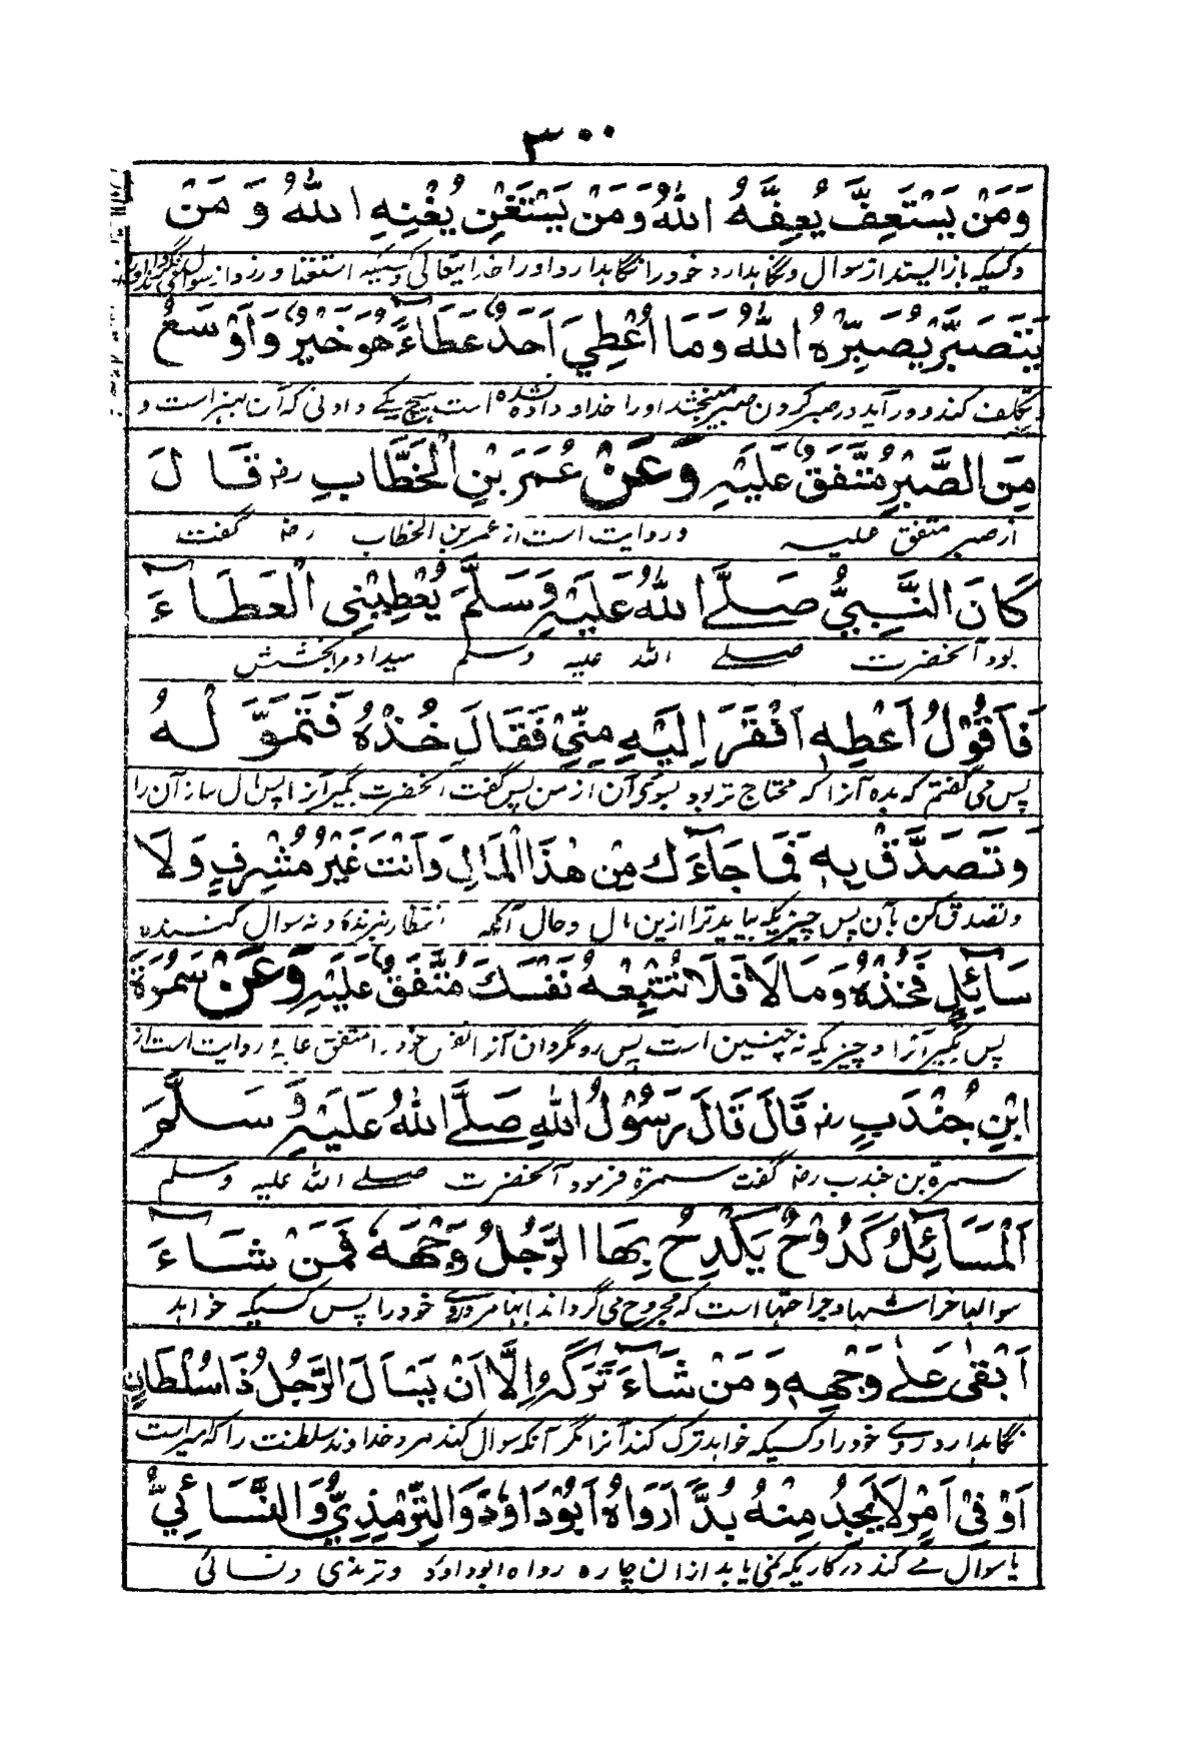 ٣٠٠
وَمَنْ يَسْتَعِفَّ يُعِفَّهُ اللهُ وَمَنْ يَسْتَغْنِ يُغْنِهِ اللهُ وَمَنْ
وکسیکه باز ایستد از سوال ونگاهدارد خود را نگاهدارد او را خدایتعالی وکسیکه استغنا ورزد از سوال
يَتَصَبَّرْ يُصَبِّرْهُ اللهُ وَمَا أُعْطِيَ أَحَدٌ عَطَاءً هُوَ خَيْرٌ وَّأَوْسَعُ
بتکلف کند و در آید در صبر کردن صبر میبخشد او را خدا و داده نشده است هیچ یکے دادنی که آن بهتر است و
مِنَ الصَّبْرِ مُتَّفَقٌ عَلَيْهِ وَعَنْ عُمَرَ بْنِ الْخَطَّابِ رض قَالَ
از صبر متفق علیه وروایت است از عمر بن الخطاب رض گفت
كَانَ النَّبِيُّ صَلَّے اللهُ عَلَيْهِ وَسَلَّمَ يُعْطِيْنِي الْعَطَآءَ
بود آنحضرت صلے الله علیه وسلم میداد مرا بخشش
فَأَقُوْلُ أَعْطِهِ أَفْقَرَ إِلَيْهِ مِنِّيْ فَقَالَ خُذْهُ فَتَمَوَّلْهُ
پس می گفتم که بده آنرا که محتاج تر بود بسوی آن از من پس گفت آنحضرت بگیر آنرا پس مال ساز آن را
وَتَصَدَّقْ بِهِ فَمَا جَآءَكَ مِنْ هٰذَا الْمَالِ وَأَنْتَ غَيْرُ مُشْرِفٍ وَلَا
وتصدق کن بآن پس چیزیکه بیاید ترا ازین مال وحال آنکه انتظار نبرنده و نه سوال کننده
سَآئِلٍ فَخُذْهُ وَمَالَا فَلَا تُتْبِعْهُ نَفْسَكَ مُتَّفَقٌ عَلَيْهِ وَعَنْ سَمُرَةَ
پس بگیر آنرا و چیزیکه نه چنین است پس رو مگردان آنرا نفس خود را متفق علیه روایت است از
ابْنِ جُنْدَبٍ رض قَالَ قَالَ رَسُوْلُ اللهِ صَلَّے اللهُ عَلَيْهِ وَسَلَّمَ
سمرة بن جندب رض گفت سمرة فرمود آنحضرت صلے الله علیه وسلم
اَلْمَسَآئِلُ كُدُوْحٌ يَكْدَحُ بِهَا الرَّجُلُ وَجْهَهٗ فَمَنْ شَآءَ
سوالها خراشها وجراحتها است که مجروح می گرداند بانها مرد روے خود را پس کسیکه خواهد
أَبْقٰى عَلٰے وَجْهِهٖ وَمَنْ شَآءَ تَرَكَهُ إِلَّا أَنْ يَسْأَلَ الرَّجُلُ ذَا سُلْطَانٍ
نگاهدارد روے خود را وکسیکه خواهد ترک کند آنرا مگر آنکه سوال کند مرد خداوند سلطنت را که میراست
أَوْ فِيْ أَمْرٍ لَا يَجِدُ مِنْهُ بُدًّا رَوَاهُ أَبُوْ دَاوٗدَ وَالتِّرْمِذِيُّ وَالنَّسَائِيُّ
یا سوال مے کند در کاریکه نمی یابد از ان چاره رواه ابوداؤد وترمذی ونسائی